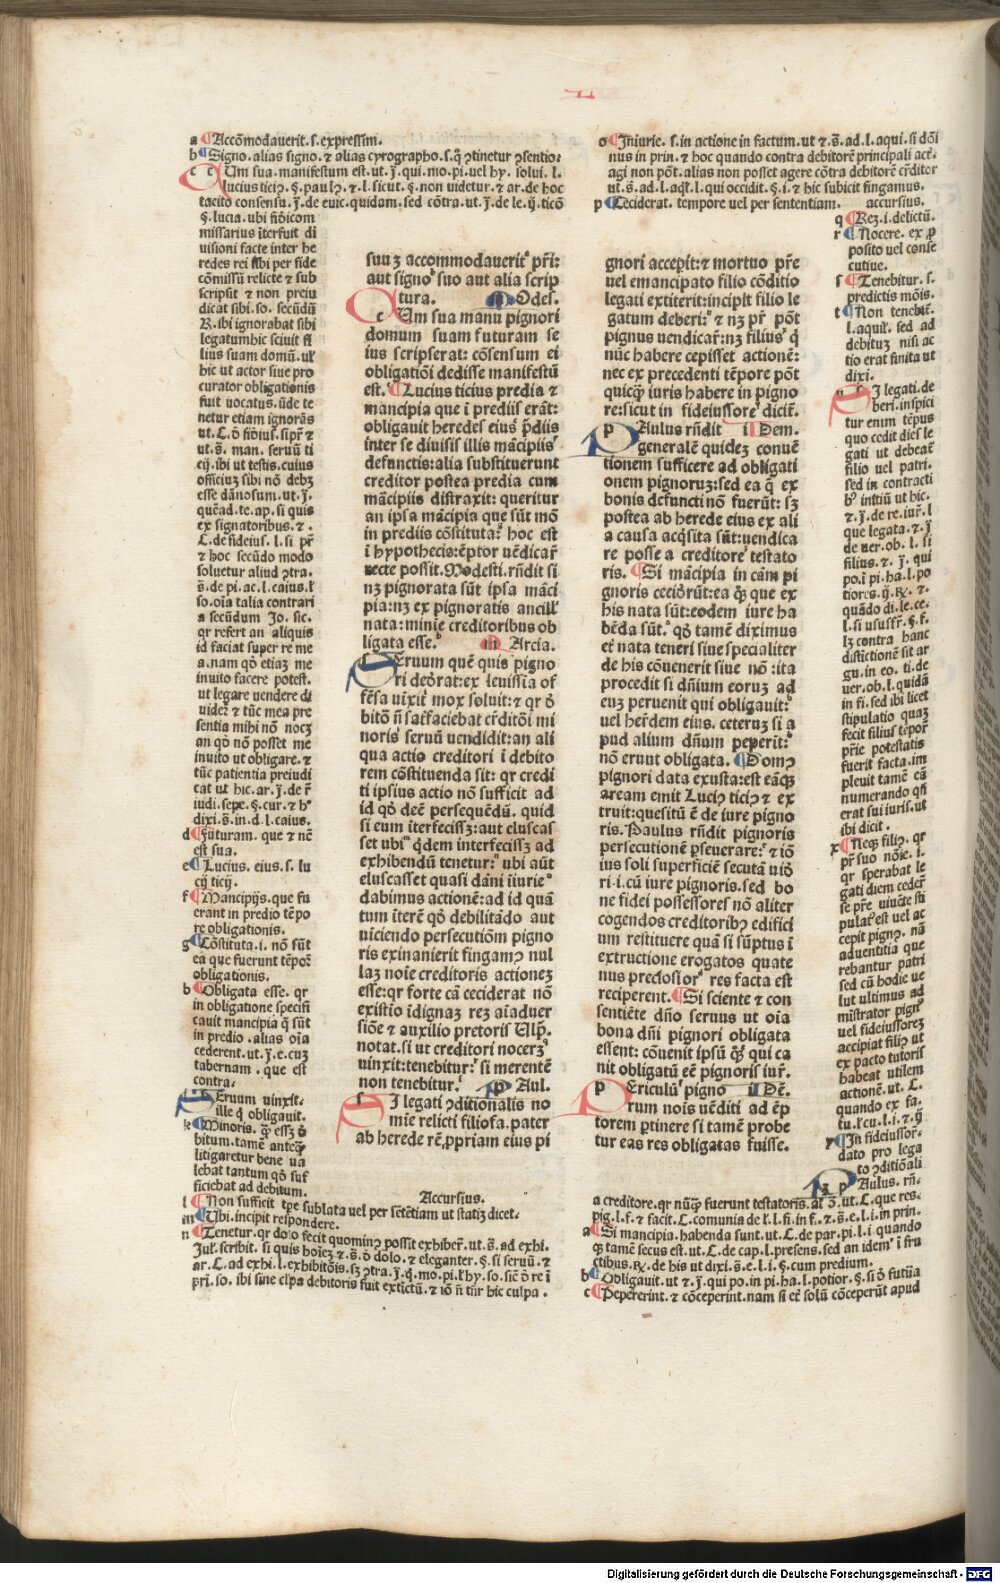 a Accōmodauerit. s. expressim.
b Signo. alias signo. ⁊ alias cyrographo. s. q̄ ꝯtinetur ꝯsentio⸗
c Um sua. manifestum est. ut. j̄. qui. mo. pi. uel hy. solui. l.
lucius ticiꝰ. §. paulꝰ. ⁊ l. sicut. §. non uidetur. ⁊ ar. de hoc
tacito consensu. j̄. de euic. quidam. sed cōtra. ut. j̄. de le. ij. ticō
§. lucia. ubi fidʼicom
missarius īterfuit di
uisioni facte inter he
redes rei sibi per fide
cōmissū relicte ⁊ sub
scripsit ⁊ non preiu
dicat sibi. so. secūdū
R. ibi ignorabat sibi
legatum hic sciuit fi
lius suam domū. uł
hic ut actor siue pro
curator obligationis
fuit uocatus. ūde te
netur etiam ignorās
ut. C. ō fidʼius. si pr̄ ⁊
ut. s̄. man. seruū ti
cij. ibi ut testis. cuius
officiuʒ sibi nō debʒ
esse dānosum. ut. j̄.
quēad. te. ap. si quis
ex signatoribus. ⁊.
C. de fideius. l. si pr̄
⁊ hoc secūdo modo
soluetur aliud ꝯtra.
s̄. de pi. ac. l. caius. ł
so. oīa talia contrari
a secūdum Jo. sic.
qr refert an aliquis
id faciat super re me
a. nam qō etiaʒ me
inuito facere potest.
ut legare uendere di
uiderʼ ⁊ tūc mea pre
sentia mihi nō nocʒ
an qō nō posset me
inuito ut obligare. ⁊
tūc patientia preiudi
cat ut hic. ar. j̄. de r̄
iudi. sepe. §. cur. ⁊ hʼ
dixi. s̄. in. d. l. caius.
d futuram. que ⁊ nē
est sua.
e Lucius. eius. s. lu
cij ticij.
f Mancipijs. que fu
erant in predio tēpo
re obligationis.
g Cōstituta. i. nō sūt
ea que fuerunt tēporʼ
obligationis.
h Obligata esse. qr
in obligatione specifi
cauit mancipia q̄ sūt
in predio. alias oīa
cederent. ut. j̄. e. cuʒ
tabernam. que est
contra.
i Eruum uinxit.
ille q̄ obligauit.
k Minoris. qꝫ essʒ ō
bitum. tamē anteq̄ꝫ
litigaretur bene ua
lebat tantum qō suf
ficiebat ad debitum.
Accursius.
l Non sufficit tpʼe sublata uel per sētētiam ut statiʒ dicet.
m Ubi. incipit respondere.
n Tenetur. qr dolo fecit quominꝰ possit exhiberʼ. ut. s̄. ad exhi.
Jul. scribit. si quis hoīeʒ ⁊. s̄. ō dolo. ⁊ eleganter. §. si seruū. ⁊
ar. C. ad exhi. l. exhibitōis. sʒ ꝯtra. j̄. q̄. mo. pi. ł hy. so. sic̄ ō re ī
pri. so. ibi sine culpa debitoris fuit extictū. ⁊ iō n̄ tn̄r hic culpa.
suuʒ accommodauerit pri:
aut signoʼ suo aut alia scrip
tura. Modes.
c Um sua manu pignori
domum suam futuram se
ius scripserat: cōsensum ei
obligatiōi dedisse manifestū
est. Lucius ticius predia ⁊
mancipia que ī predijs erāt:
obligauit heredes eius pdijs
inter se diuisis illis mācipijs
defunctis: alia substituerunt
creditor postea predia cum
mācipijs distraxit: queritur
an ipsa mācipia que sūt mō
in predijs cōstitutaʼ hoc est
ī hypothecis: ēptor uēdicar̄
recte possit. Modesti. rn̄dit si
nʒ pignorata sūt ipsa māci
pia: nʒ ex pignoratis ancillʼ
nata: minīe creditoribus ob
ligata esse. Marcia.
s Eruum quē quis pigno
ri dedʼrat: ex leuissīa of
fēsa uīxitʼ mox soluit: ⁊ qr ō
bitō n̄ satīfaciebat crʼditōi mi
noris seruū uendidit: an ali
qua actio creditori ī debito
rem cōstituenda sit: qr credi
ti ipsius actio nō sufficit ad
id qō deē persequēdū. quid
si eum īterfecissʒ: aut eluscas
set ubi q̄dem interfecissʒ ad
exhibendū tenetur: ubi aūt
eluscasset quasi dāni īiurieʼ
dabimus actionē: ad id quā
tum īterē qō debilitādo aut
uīciendo persecutiōm pigno
ris exinanierit fingamꝰ nul
laʒ noīe creditoris actioneʒ
esse: qr forte cā ceciderat nō
existīo īdignaʒ reʒ aīaduer
siōe ⁊ auxilio pretoris Ulp.
notat. si ut creditori nocerʒʼ
uinxit: tenebitur: si merentē
non tenebitur. Paul.
s I legati ꝯditionalis no
mīe relicti filiofa. pater
ab herede rē. ppriam eius pi
gnori accepit: ⁊ mortuo pr̄e
uel emancipato filio cōditio
legati extiterit: incipit filio le
gatum deberi: ⁊ nʒ pr̄ pōt
pignus uendicarʼ: nʒ filiusʼ q̄
nūc habere cepisset actionē:
nec ex precedenti tēpore pōt
quicq̄ꝫ iuris habere in pigno
re: sicut in fideiussoreʼ dicit̄.
p Aulus rn̄dit Idem.
generalē quideʒ conuē
tionem sufficere ad obligati
onem pignoruʒ: sed ea q̄ ex
bonis defuncti nō fuerūt: sʒ
postea ab herede eius ex ali
a causa acq̄sita sūt: uendica
re posse a creditoreʼ testato
ris. Si mācipia in cām pi
gnoris ceciderūt: ea q̄ꝫ que ex
his nata sūt: eodem iure ha
bēda sūt. qō tamē diximus
et nata teneri siue specialiter
de his cōuenerit siue nō: ita
procedit si dn̄ium eoruʒ ad
euʒ peruenit qui obligauit:
uel herʼdem eius. ceteruʒ si a
pud alium dn̄um peperit:
nō erunt obligata. Domꝰ
pignori data exusta: est eāq̄ꝫ
aream emit Luciꝰ ticiꝰ ⁊ ex
truit: quesitū ē de iure pigno
ris. Paulus rn̄dit pignoris
persecutionē pseuerare: ⁊ iō
ius soli superficiē secutā uidʼ
ri. i. cū iure pignoris. sed bo
ne fidei possessores nō aliter
cogendos creditoribꝰ edifici
um restituere quā si sūptus ī
extructione erogatos quate
nus preciosiorʼ res facta est
reciperent. Si sciente ⁊ con
sentiēte dn̄o seruus ut oīa
bona dn̄i pignori obligata
essent: cōuenit ipsū q̄ꝫ qui ca
nit obligatū eē pignoris iur̄.
p Ericulū pigno Idē.
rum noīs uēditi ad ēp
torem ptinere si tamē probe
tur eas res obligatas fuisse.
o Iniurie. s. in actione in factum. ut ⁊ s̄. ad. l. aqui. si dōi
nus in prin. ⁊ hoc quando contra debitorē principali act.
agi non pōt. alias non posset agere cōtra debitorē crʼditor
ut. s̄. ad. l. aqʼl. l. qui occidit. §. i. ⁊ hic subicit fingamus.
p Ceciderat. tempore uel per sententiam. accursius.
q Reʒ. i. delictū.
r Nocere. ex ꝓ
posito uel conse
cutiue.
s Tenebitur. s.
predictis mōis.
t Non tenebit̄.
l. aquil. sed ad
debituʒ nisi ac
tio erat finita ut
dixi.
u I legati. de
beri. inspici
tur enim tēpus
quo cedit dies le
gati ut debeat̄
filio uel patri.
sed in contracti
bꝰ īstitū ut hic.
⁊. j̄. de re. iur. l
que legata. ⁊. j̄
de uer. ob. l. si
filius. ⁊. j̄. qui
po. ī pi. ha. l. po
tiores. ij. R. ⁊.
quādo di. le. ce.
l. si ususfr. §. f.
lʒ contra hanc
distictionē sit ar
gu. in eo. ti. de
uer. ob. l. quidā
in fi. sed ibi licet
stipulatio quaʒ
fecit filius tēporʼ
pr̄ie potestatis
fuerit facta. im
pleuit tamē eā
numerando qn̄
erat sui iuris. ut
ibi dicit.
x Neq̄ꝫ filiꝰ. qr
pr̄ suo noīe. l.
qr sperabat le
gati diem cederʼ
se pr̄e uiuēte sti
pulatʼ est uel ac
cepit pignꝰ. nā
aduentitia que
rebantur patri
sed cū hodie ue
lut ultimus ad
mīstrator pignʼ
uel fideiussoreʒ
accipiat filiꝰ ut
ex pacto tutoris
habeat utilem
actionē. ut. C.
quando ex fa.
tu. ł cu. l. i. ⁊. ij
y In fideiussor.
dato pro lega
to ꝯditiōali
z p Aulus. rn̄.
a creditore. qr nūq̄ꝫ fuerunt testatoris. ar. ō. ut. C. que res.
pig. l. f. ⁊ facit. C. comunia de ł. l. fi. in f. ⁊. s̄. e. l. i. in prin.
a Si mancipia. habenda sunt. ut. C. de par. pi. l. i quando
q̄ꝫ tamē secus est. ut. C. de cap. l. presens. sed an idemʼ ī fru
ctibus. R. de his ut dixi. s̄. e. l. i. §. cum predium.
b Obligauit. ut ⁊. j̄. qui po. in pi. ha. l. potior. §. si ō futūa
c Pepererint. ⁊ cōceperint. nam si etʼ solū cōceperūt apud
Digitalisierung gefördert durch die Deutsche Forschungsgemeinschaft - DFG